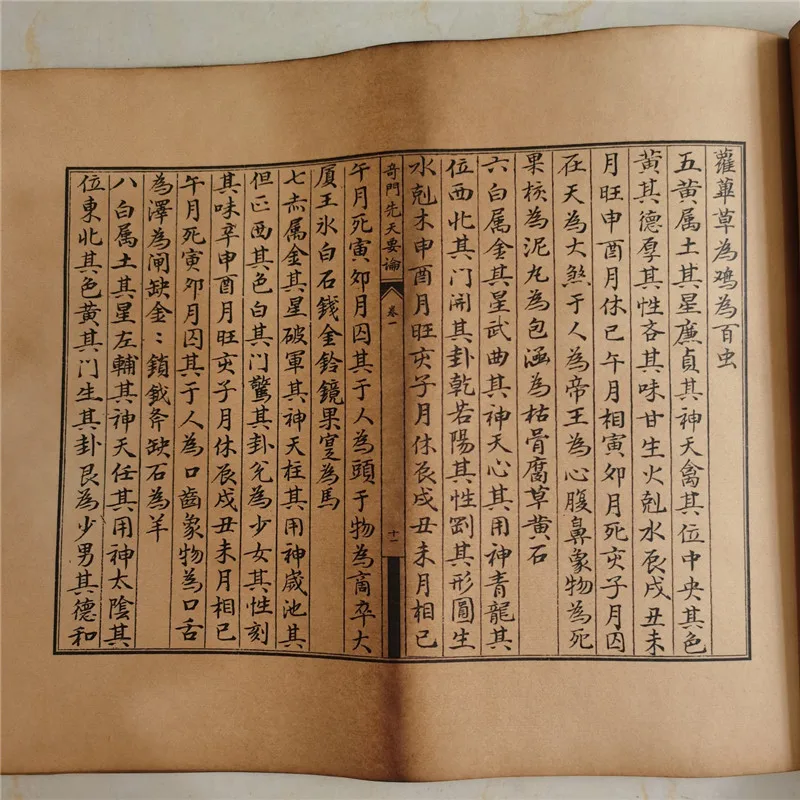 蘿蓽草為鸡為百虫
五黄属土其星廉貞其神天禽其位中央其色
黄其德厚其性吝其味甘生火剋水辰戌丑未
月旺申酉月休巳午月相寅夘月死亥子月囚
在天為大煞于人為帝王為心腹鼻象物為死
果核為泥丸為包涵為枯骨腐草黄石
六白属金其星武曲其神天心其用神青龍其
位西北其门開其卦乾若陽其性剛其形圓生
水剋木申酉月旺亥子月休辰戌丑未月相巳
奇門先天要論
卷一
十一
午月死寅夘月囚其于人為頭于物為高卒大
厦王氷白石錢金鈴鏡果寔為馬
七赤属金其星破軍其神天柱其用神咸池其
位正西其色白其门驚其卦兊為少女其性刻
其味辛申酉月旺亥子月休辰戌丑未月相巳
午月死寅夘月囚其于人為口齒象物為口舌
為澤為闸缺金：鎖鉞斧缺石為羊
八白属土其星左輔其神天任其用神太陰其
位東北其色黄其门生其卦艮為少男其德和